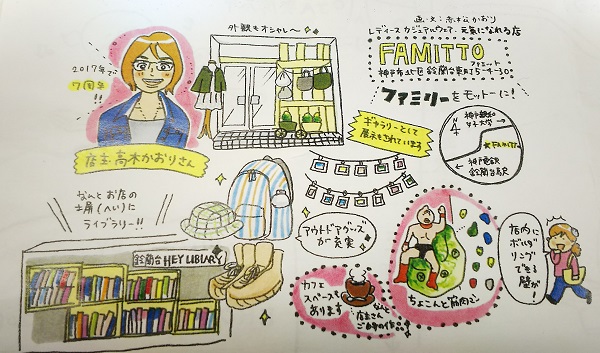 画・文：赤松かおり
レディースカジュアルウェア、元気になれる店
FAMITTO
ファミット
神戸市北区鈴蘭台東町5-9-30
ファミリーをモットーに!
外観もオシャレ〜
2017年で
7周年
!!
店主 高木かおりさん
ギャラリーとして
展示もされています
神戸親和
女子大学
★FAMITTO
神戸電鉄
鈴蘭台駅
なんとお店の
士屑(へい)に
ライブラリー!!
鈴蘭台HEY LIBLARY
アウトドアグッズ
が充実
カフェ
スペースも
あります
なんと
店主さん
ご自身の作!!
ちょこんと筋肉マン
店内に
ボルダ
リング
できる
壁が!